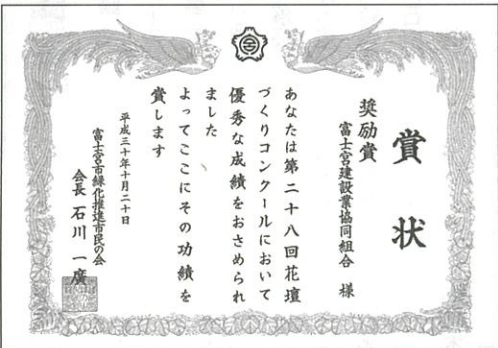 賞状
奨励賞
富士宮建設業協同組合 様
あなたは第二十八回花壇
づくりコンクールにおいて
優秀な成績をおさめられ
ました
よってここにその功績を
賞します
平成三十年十月二十日
富士宮市緑化推進市民の会
会長 石川 一廣